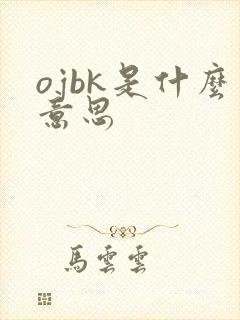 ojbk是什麼
意思
馬雲雲